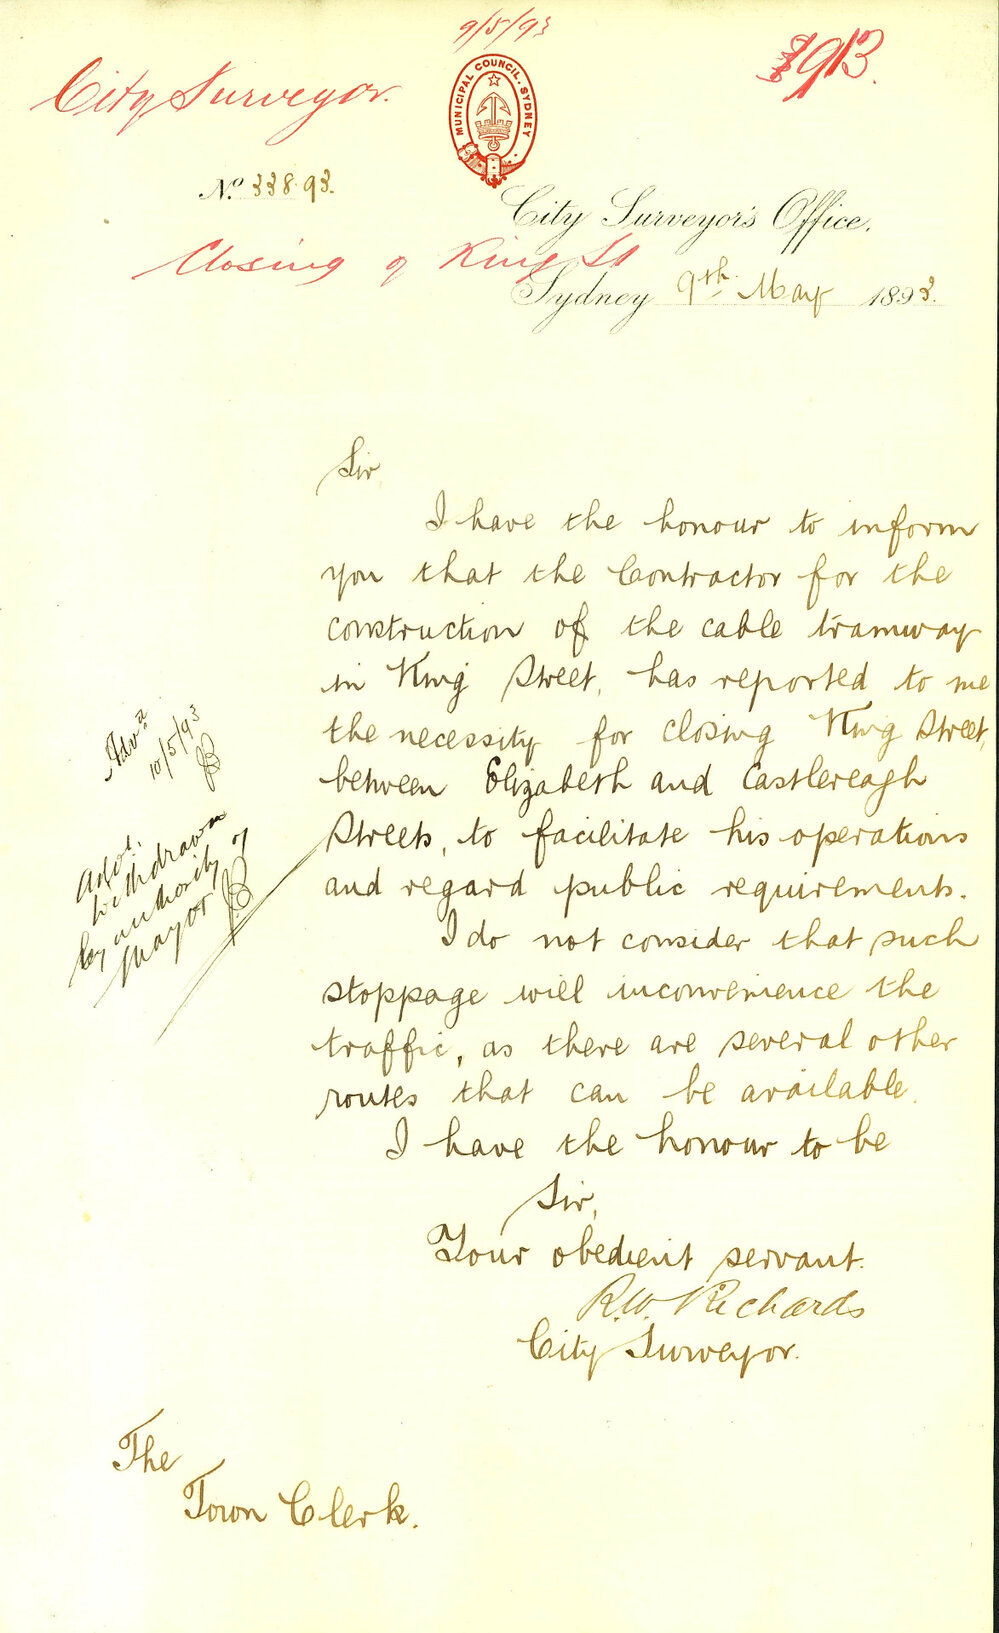 9/5/93
City Surveyor.
913.
MUNICIPAL COUNCIL. SYDNEY
No. 338.93.
City Surveyor's Office,
Closing of King St
Sydney 9th May 1893.
Sir,
I have the honour to inform
you that the Contractor for the
construction of the cable tramway
in King Street, has reported to me
the necessity for closing King Street,
between Elizabeth and Castlereagh
Streets, to facilitate his operations
and regard public requirements.
I do not consider that such
stoppage will inconvenience the
traffic, as there are several other
routes that can be available.
I have the honour to be
Sir,
Your obedient servant.
R.W. Richards
City Surveyor.
Advt
10/5/93
Advt.
withdrawn
by authority of
Mayor
The
Town Clerk.